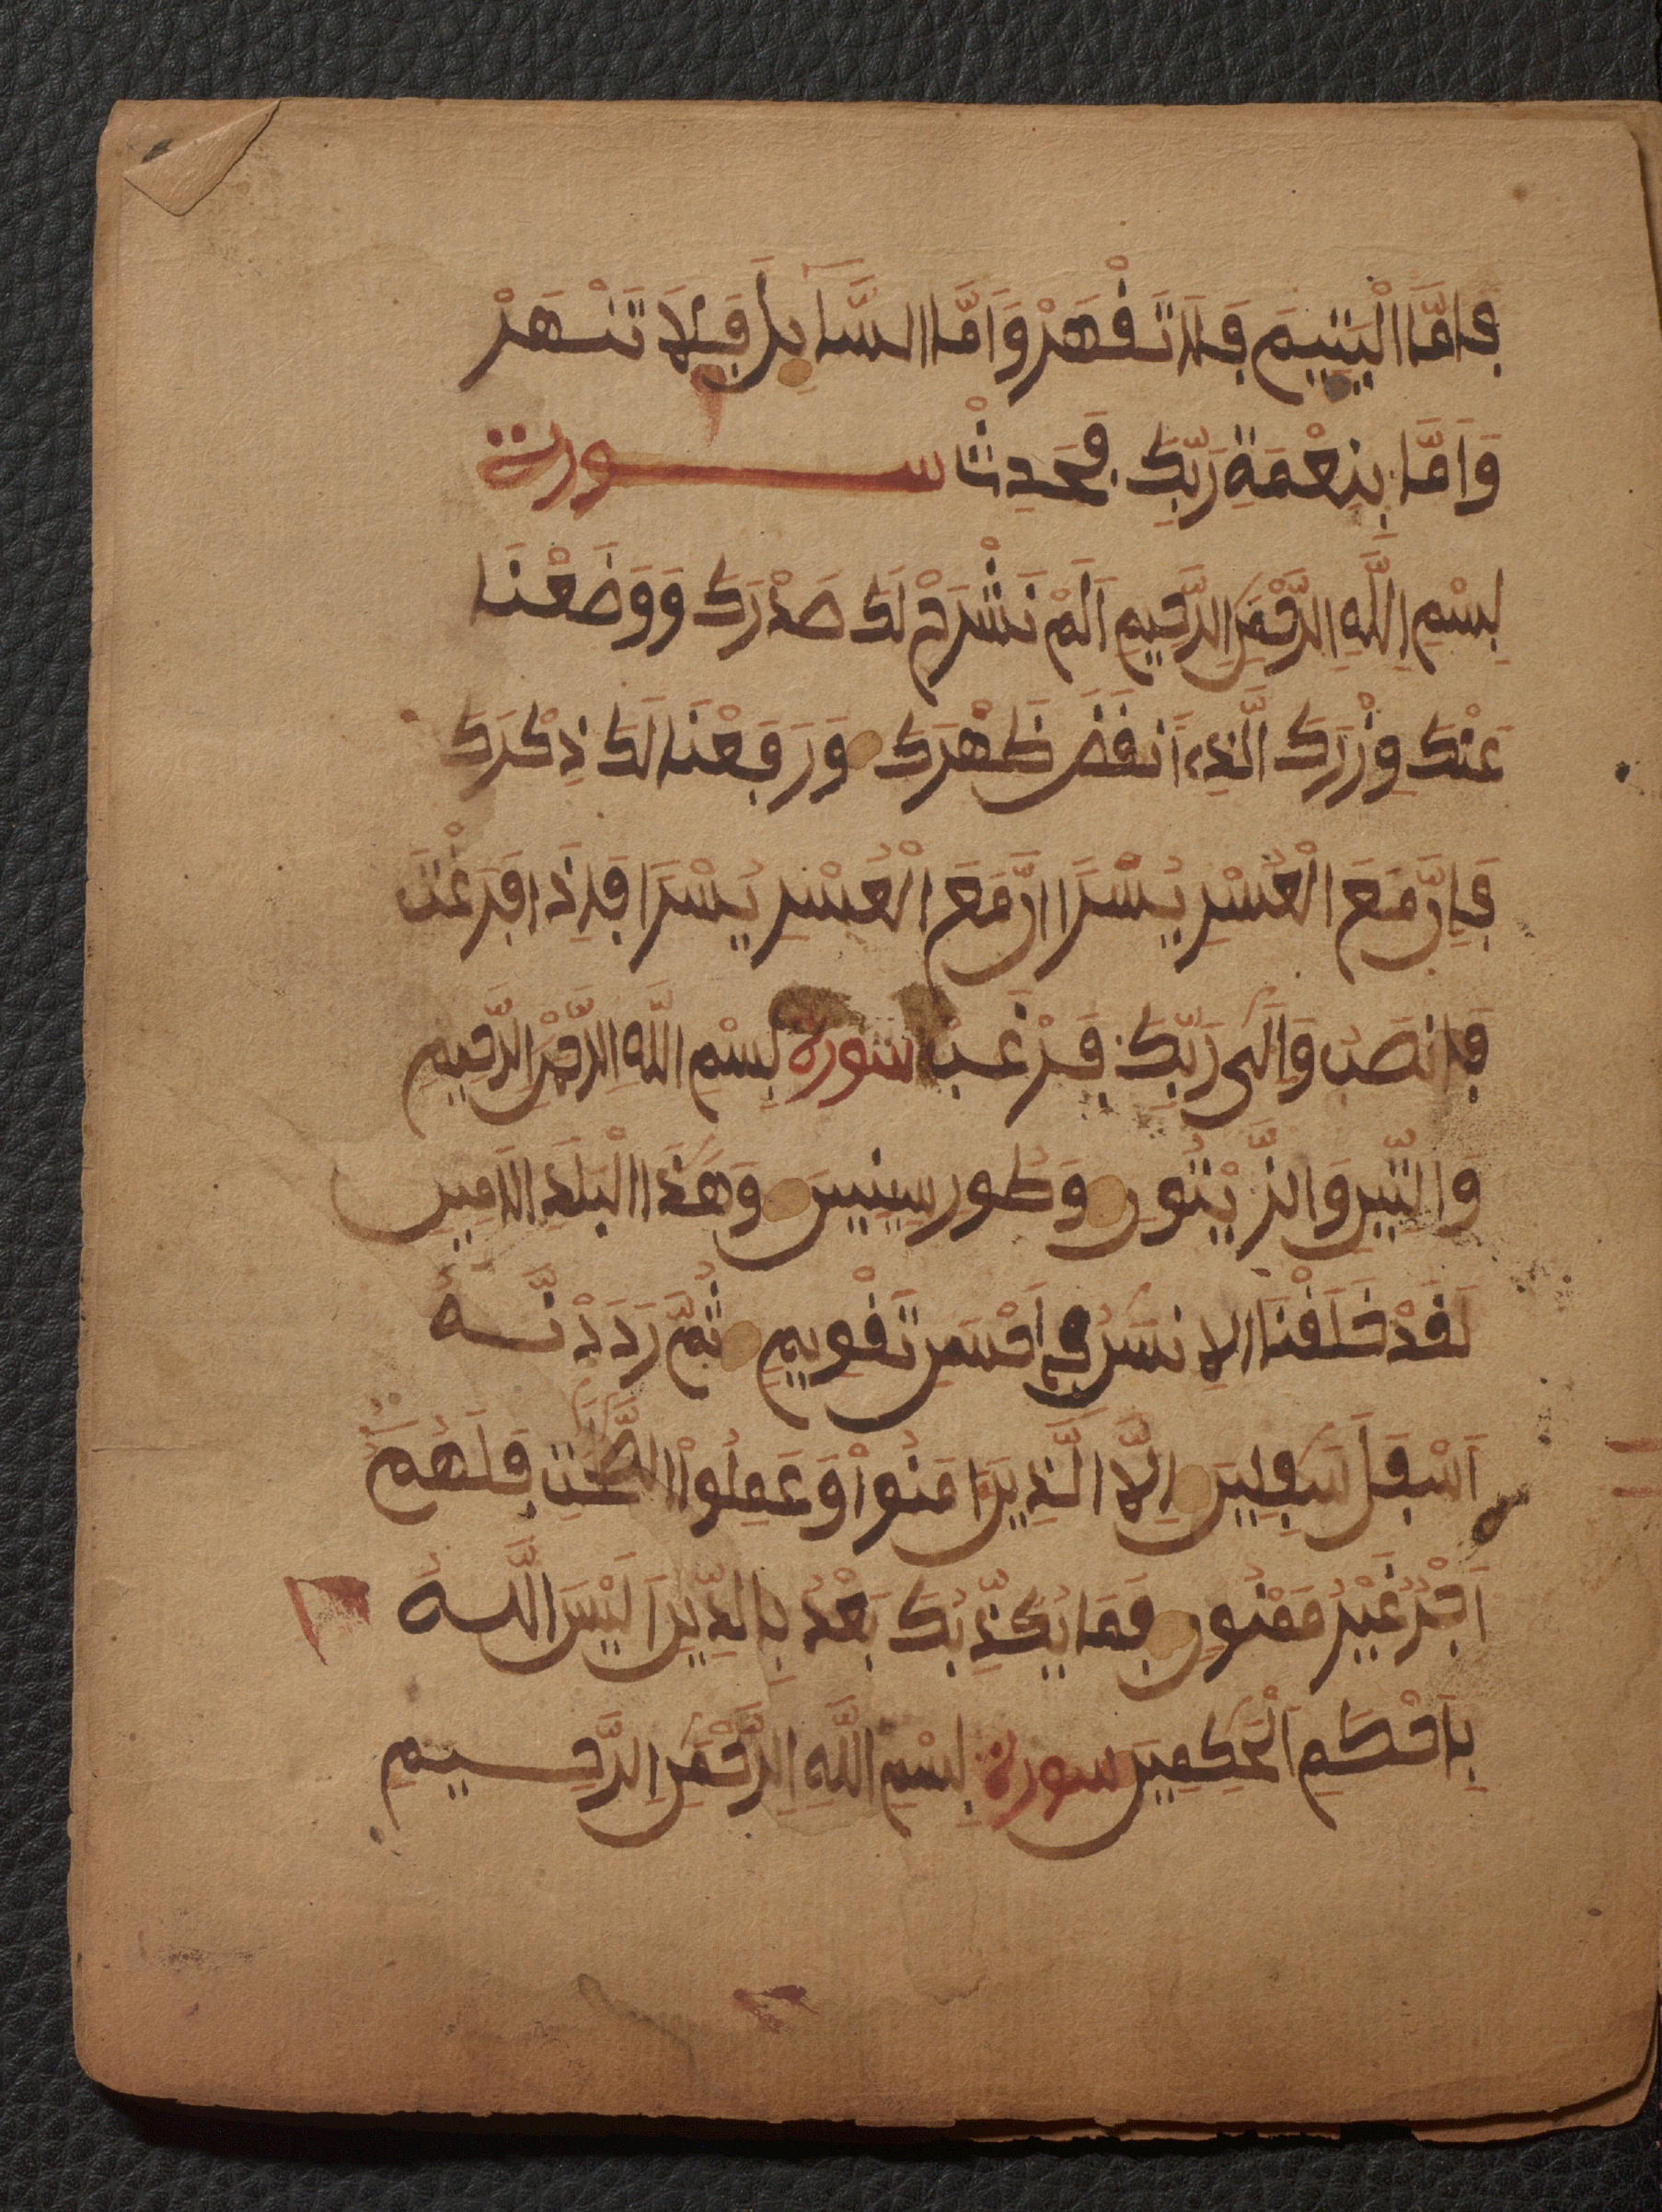 فَأَمَّا الْيَتِيمَ فَلَا تَقْهَرْ وَأَمَّا السَّآيِلَ فَلَا تَنْهَرْ
وَأَمَّا بِنِعْمَةِ رَبِّكَ فَحَدِثْ سورة
بِسْمِ اِللَّهِ اِلرَّحْمَنِ اِلرَّحِيمِ أَلَمْ نَشْرَحْ لَكَ صَدْرَكَ وَوَضَعْنَا
عَنْكَ وِزْرَكَ الَّذِے أَنقَضَ ظَهْرَكَ وَرَفَعْنَا لَكَ ذِكْرَكَ
فَإِنَّ مَعَ الْعُسْرِ يُسْرًا إنَّ مَعَ الْعُسْرِ يُسْرًا فَإِذَا فَرَغْتَ
فَانصَبْ وَإِلَى رَبِّكَ فَرْغَبْ سورة بِسْمِ اللَّهِ الرَّحْمَنِ الرَّحِيمِ
وَالتِّينِ وَالزَّيْتُونِ وَطُورِ سِينِينَ وَهَذَا الْبَلَدِ الَامِينِ
لَقَدْ خَلَقْنَا الِانسَنَ فِي أَحْسَنِ تَقْوِيمٍ ثُمَّ رَدَدْنَهُ
أَسْفَلَ سَفِلِينَ إِلَّا الَّذِينَ ءَامَنُواْ وَعَمِلُواْ الصَّلِحَتِ فَلَهُمُ
أَجْرٌ غَيْرُ مَمْنُونٍ فَمَا يُكَذِّبُكَ بَعْدُ بِالدِّينِ أَلَيْسَ اللَّهُ
بِأَحْكَمِ الْحَكِمِينَ سورة بِسْمِ اللَّهِ اِلرَّحْمَنِ اِلرَّحِيمِ